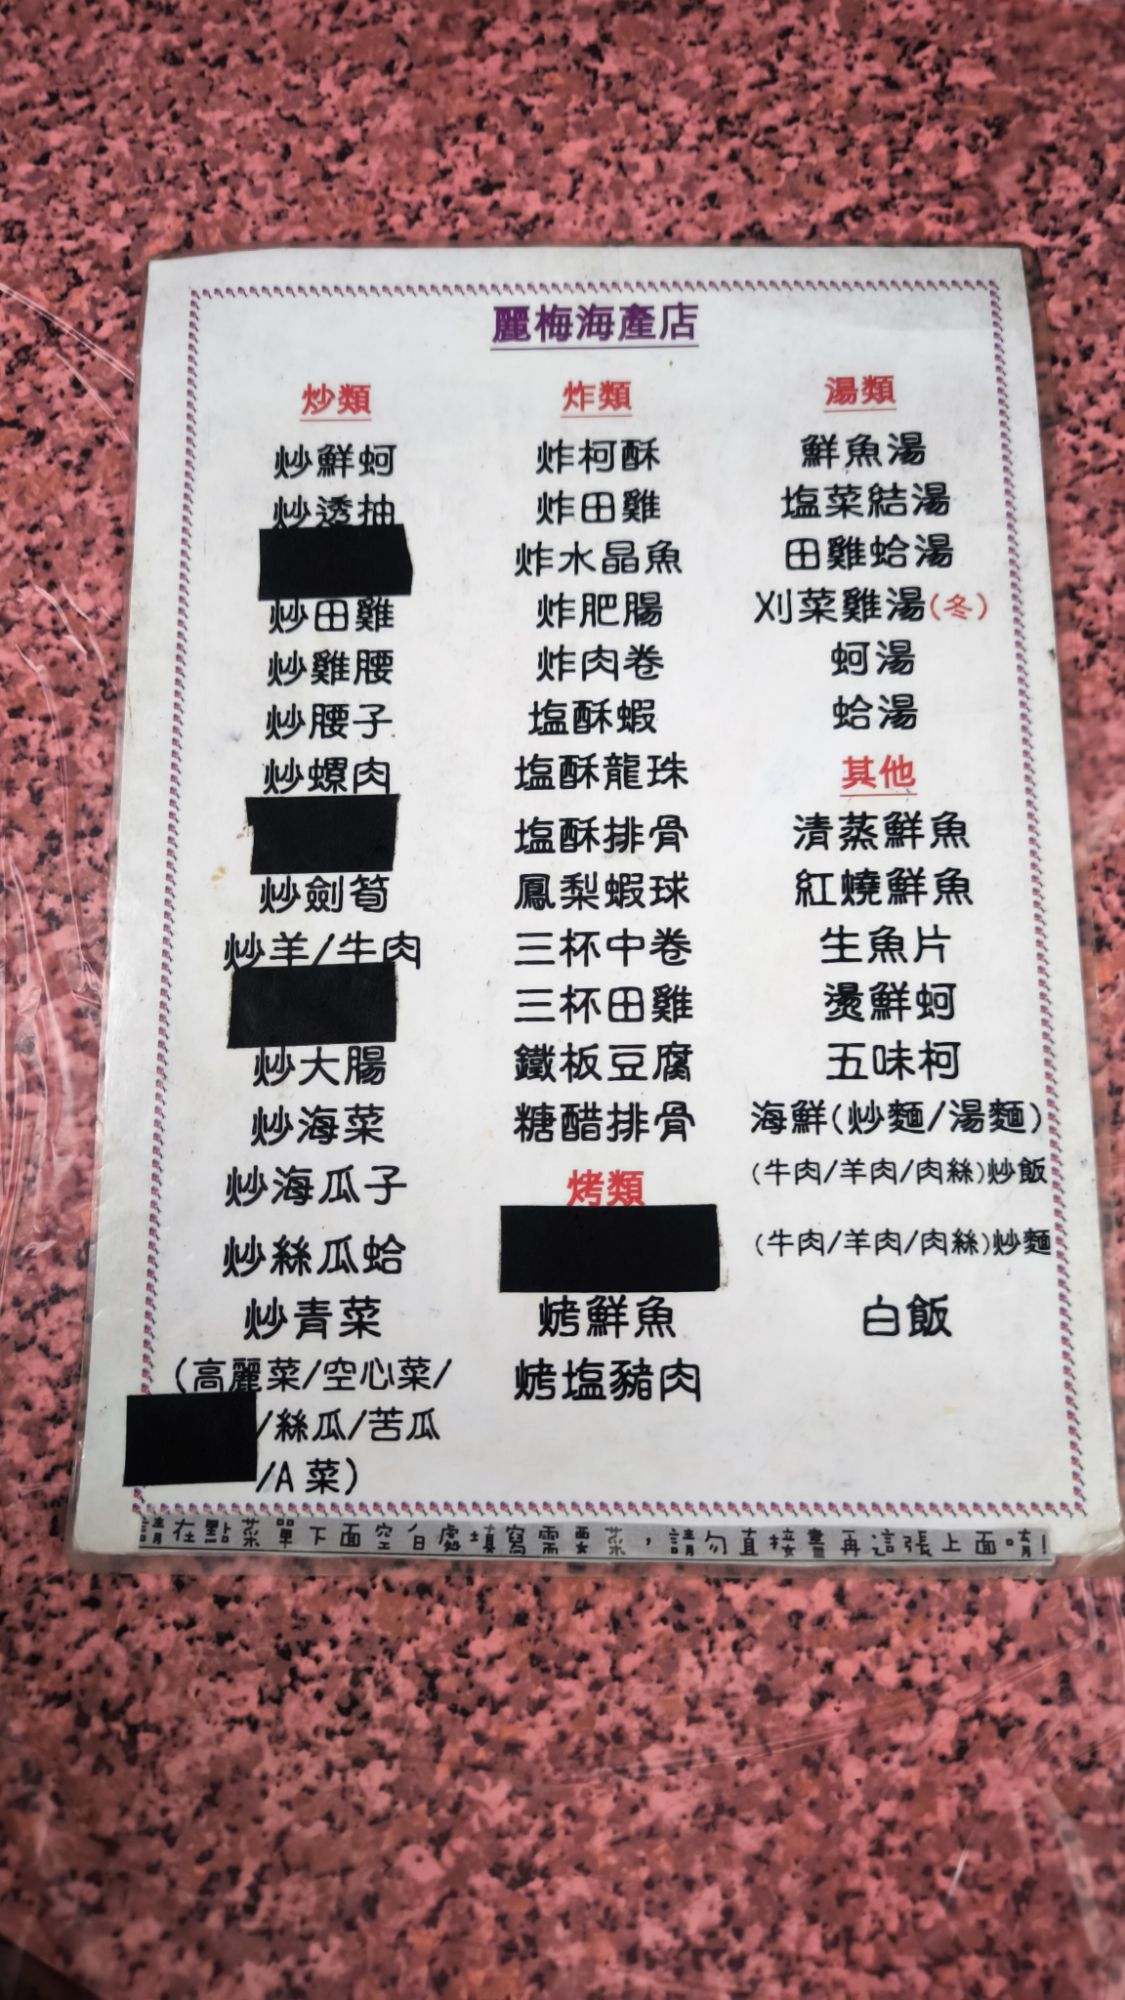 麗梅海產店
炒類
炒鮮蚵
炒透抽
炒田雞
炒雞腰
炒腰子
炒螺肉
炒劍筍
炒羊/牛肉
炒大腸
炒海菜
炒海瓜子
炒絲瓜蛤
炒青菜
(高麗菜/空心菜/
/絲瓜/苦瓜
/A菜)
炸類
炸柯酥
炸田雞
炸水晶魚
炸肥腸
炸肉卷
塩酥蝦
塩酥龍珠
塩酥排骨
鳳梨蝦球
三杯中卷
三杯田雞
鐵板豆腐
糖醋排骨
烤類
烤鮮魚
烤塩豬肉
湯類
鮮魚湯
塩菜結湯
田雞蛤湯
刈菜雞湯(冬)
蚵湯
蛤湯
其他
清蒸鮮魚
紅燒鮮魚
生魚片
燙鮮蚵
五味柯
海鮮(炒麵/湯麵)
(牛肉/羊肉/肉絲)炒飯
(牛肉/羊肉/肉絲)炒麵
白飯
請在點菜單下面空白處填寫需要菜，請勿直接畫再這張上面唷!